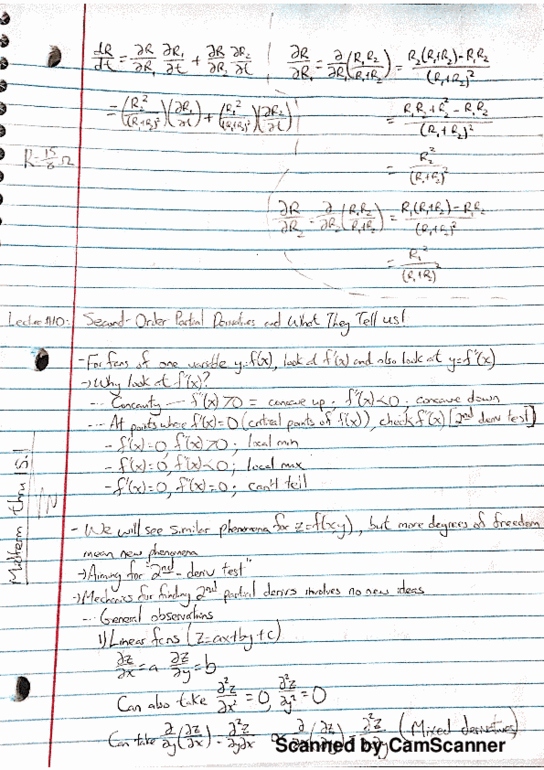 dR/dt = ∂R/∂R₁ ∂R₁/∂t + ∂R/∂R₂ ∂R₂/∂t
= (R₂²/(R₁+R₂)²)(∂R₁/∂t) + (R₁²/(R₁+R₂)²)(∂R₂/∂t)
R = 15/8 Ω
∂R/∂R₁ = ∂/∂R₁(R₁R₂/(R₁+R₂)) = (R₂(R₁+R₂)-R₁R₂)/(R₁+R₂)²
= (R₁R₂+R₂²-R₁R₂)/(R₁+R₂)²
= R₂²/(R₁+R₂)²
∂R/∂R₂ = ∂/∂R₂(R₁R₂/(R₁+R₂)) = (R₁(R₁+R₂)-R₁R₂)/(R₁+R₂)²
= R₁²/(R₁+R₂)²
Lecture #10: Second-Order Partial Derivatives and What They Tell us!
- For fcns of one variable y=f(x), look at f'(x) and also look at y=f''(x)
→ Why look at f''(x)?
-- Concavity — f''(x)>0 = concave up, f''(x)<0: concave down
-- At points where f'(x)=0 (critical points of f(x)), check f''(x) [2nd deriv test]
- f'(x)=0, f''(x)>0; local min
- f'(x)=0, f''(x)<0; local max
- f'(x)=0, f''(x)=0; can't tell
Midterm thru 15.1
- We will see similar phenomena for z=f(x,y), but more degrees of freedom
mean new phenomena
→ Aiming for "2nd-deriv test"
→ Mechanics for finding 2nd partial derivs involves no new ideas
-- General observations
1) Linear fcns (z=ax+by+c)
∂z/∂x = a ∂z/∂y = b
Can also take ∂²z/∂x² = 0, ∂²z/∂y² = 0
Can take ∂/∂y(∂z/∂x) = ∂²z/∂y∂x (Mixed derivatives)
Scanned by CamScanner